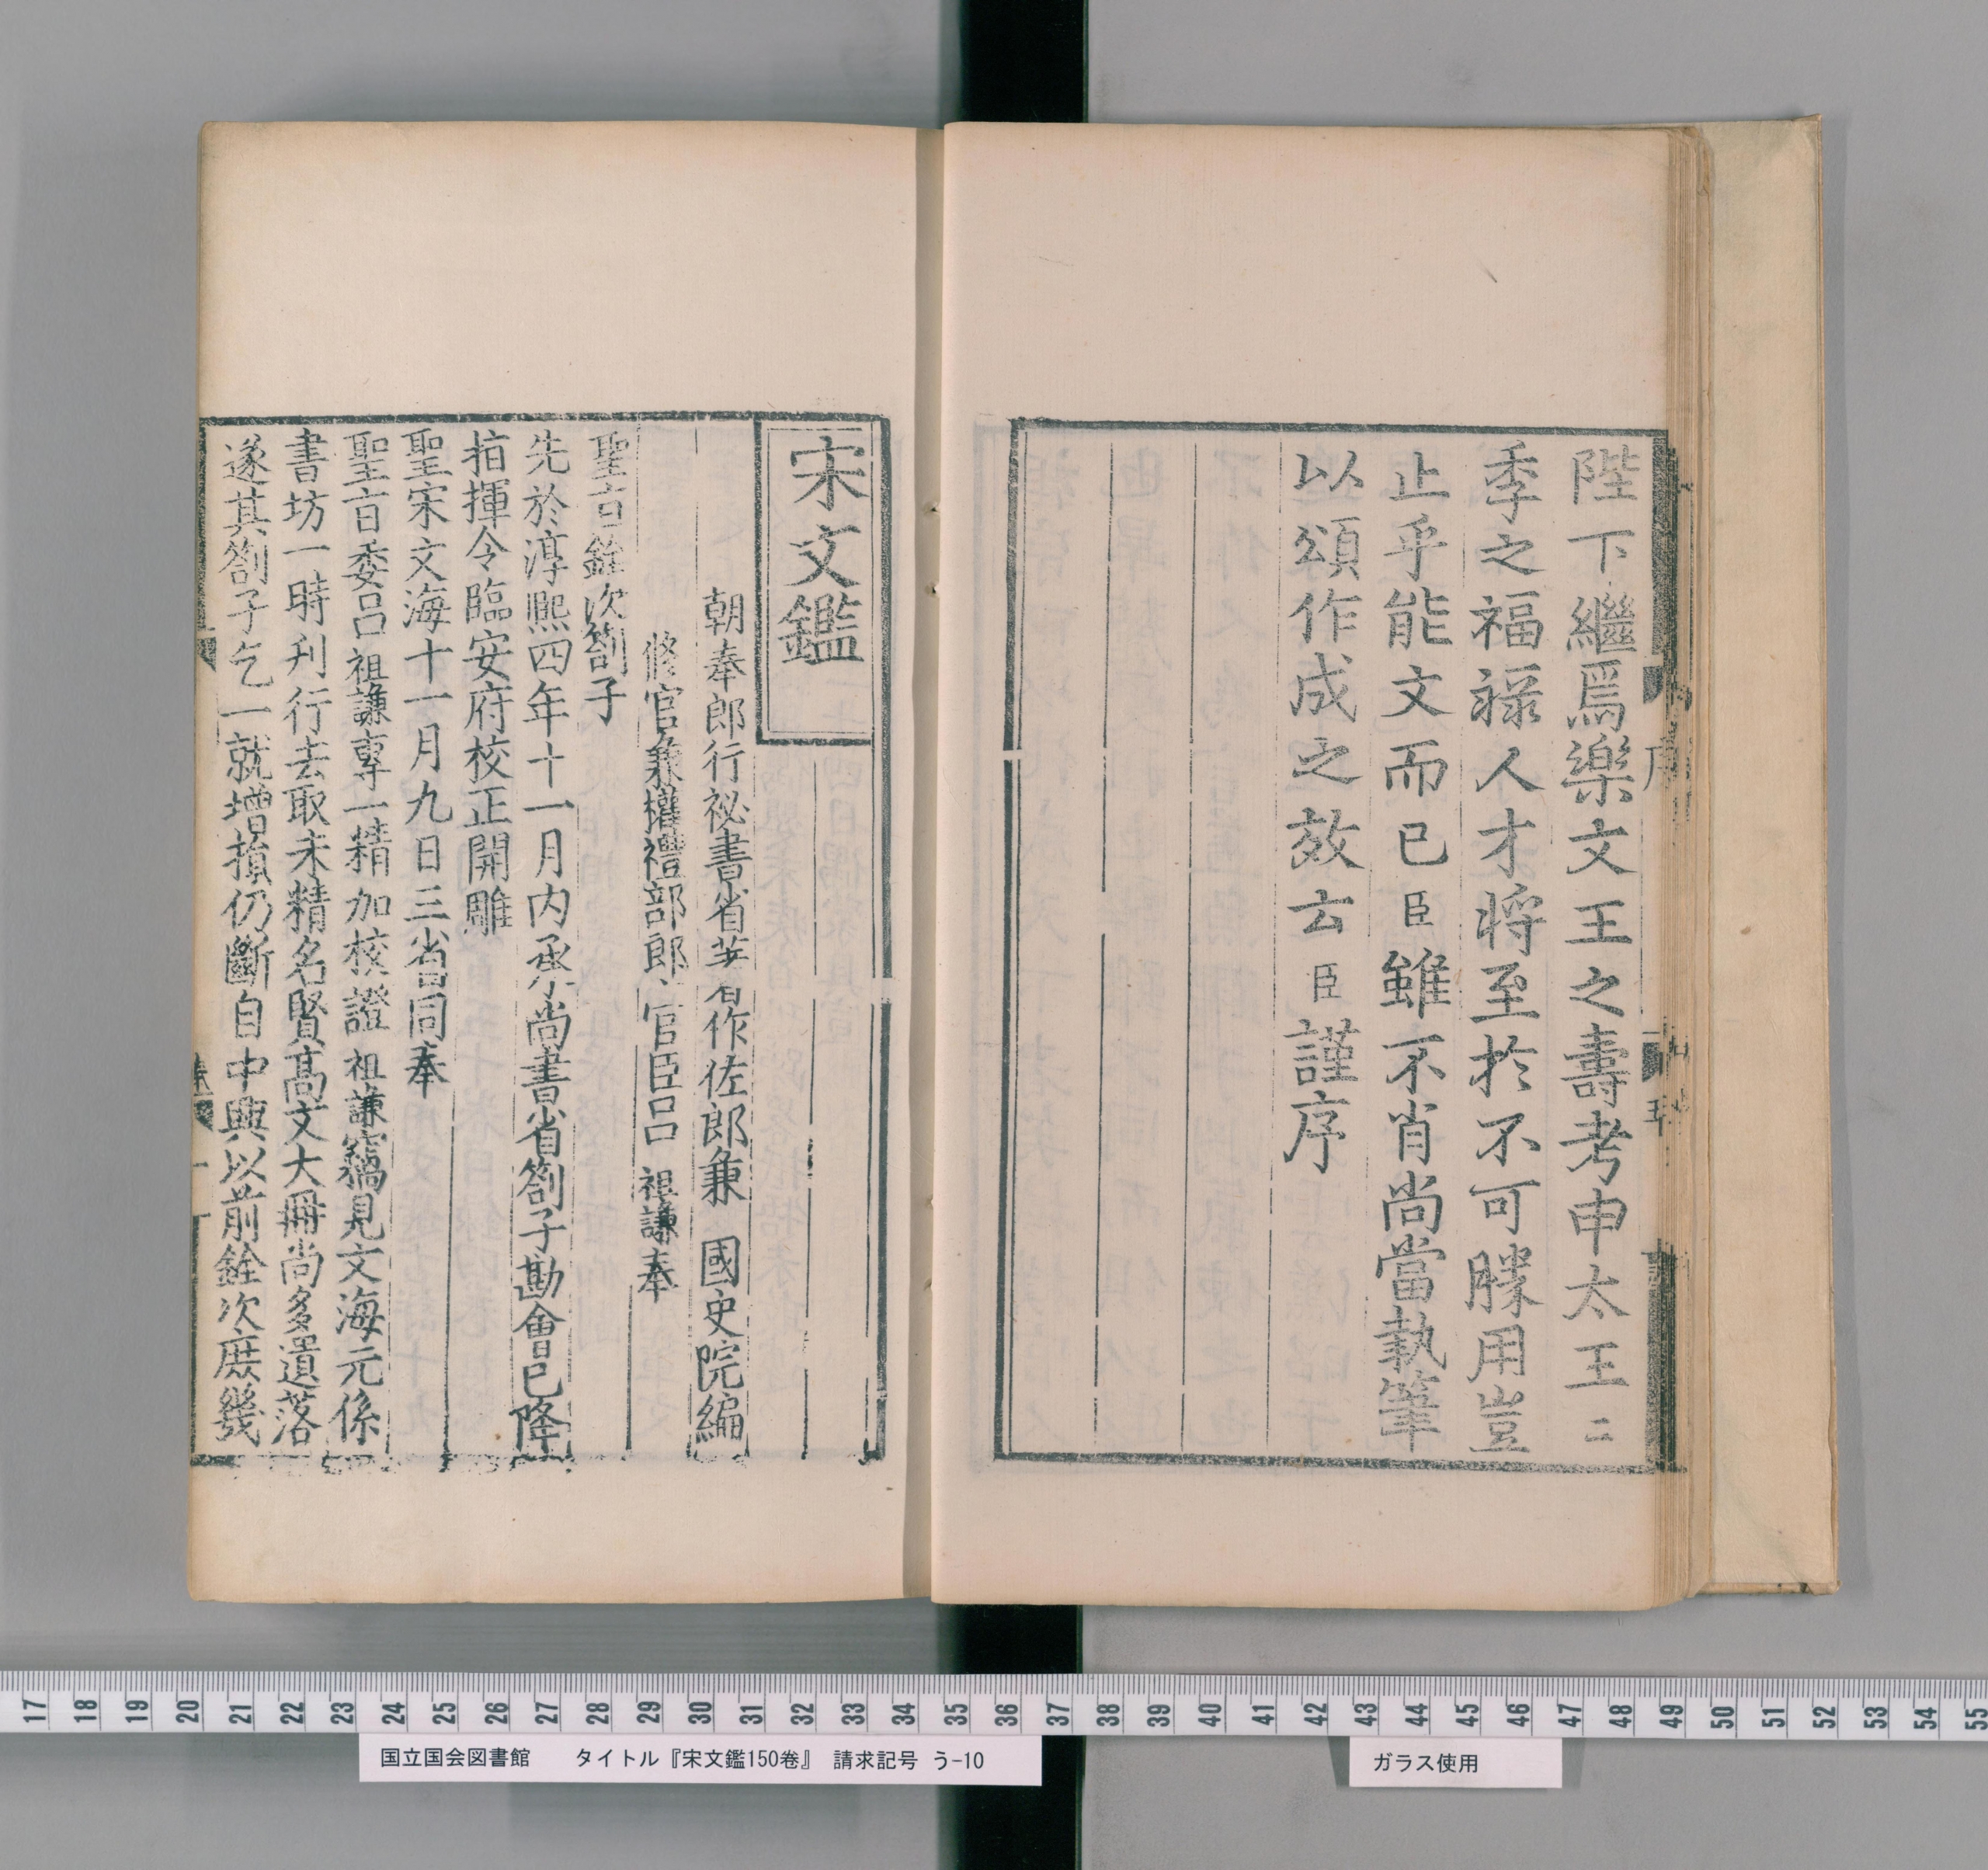 陛下繼焉樂文王之壽考申太王二
季之福祿人才將至於不可勝用豈
止乎能文而已臣雖不肖尚當執筆
以頌作成之效云臣謹序
宋文鑑
朝奉郎行祕書省著作佐郎兼國史院編
修官兼權禮部郎官臣呂祖謙奉
聖旨銓次劄子
先於淳熙四年十一月内承尚書省劄子勘會已降
指揮令臨安府校正開雕
聖宋文海十一月九日三省同奉
聖旨委呂祖謙專一精加校證祖謙竊見文海元係
書坊一時刊行去取未精名賢高文大冊尚多遺落
遂其劄子乞一就增損仍斷自中興以前銓次庶幾
17 18 19 20 21 22 23 24 25 26 27 28 29 30 31 32 33 34 35 36 37 38 39 40 41 42 43 44 45 46 47 48 49 50 51 52 53 54 55
国立国会図書館 タイトル『宋文鑑150巻』 請求記号 う-10
ガラス使用